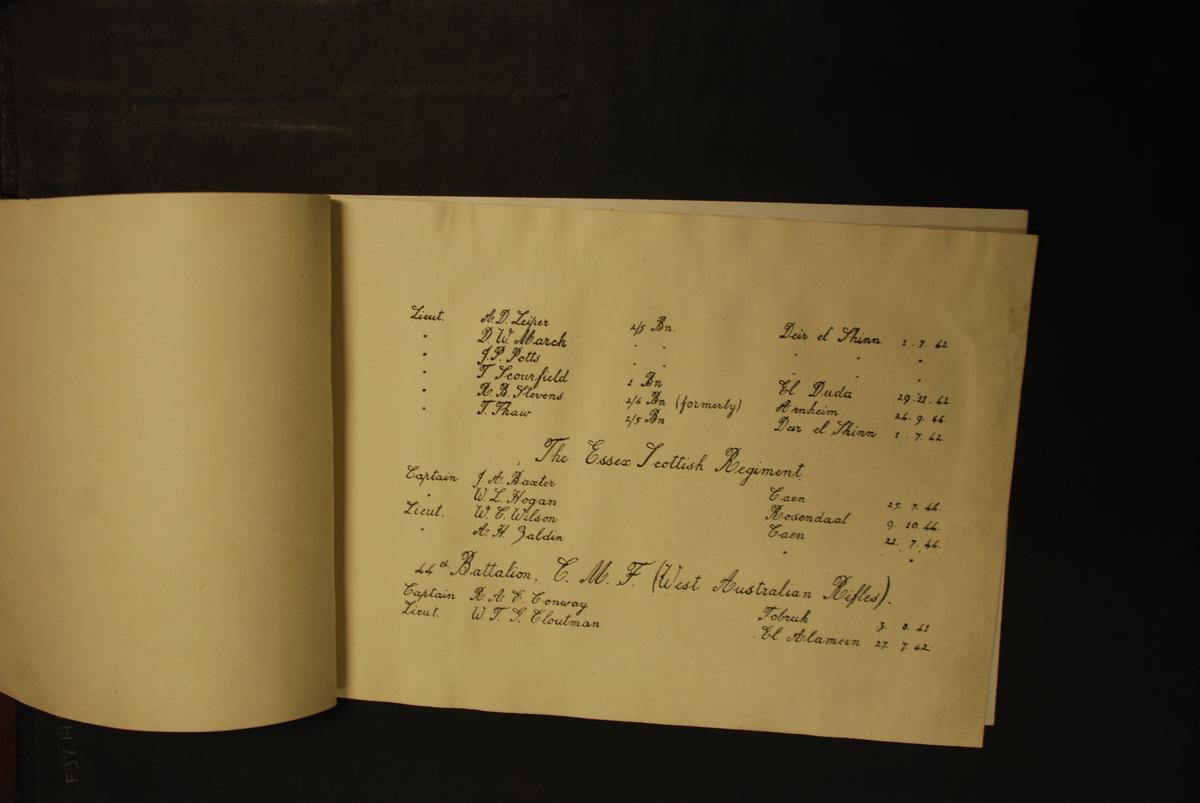 Lieut. A. D. Leiper 2/5 Bn. Deir el Shinn 1. 7. 42
" D. W. March " " " " "
" J. P. Potts " " " " "
" T. Scourfield 1 Bn El Duda 29. 11. 41
" R. B. Stevens 2/4 Bn (formerly) Arnheim 24. 9. 44
" T. Thaw 2/5 Bn Deir el Shinn 1. 7. 42
The Essex Scottish Regiment
Captain J. A. Baxter Caen 25. 7. 44.
" W. L. Hogan Rosendaal 9. 10. 44
Lieut. W. C. Wilson Caen 22. 7. 44.
" A. H. Zaldin " " " "
44th Battalion, C. M. F. (West Australian Rifles).
Captain R. A. E. Conway Tobruk 3. 8. 41
Lieut. W. T. G. Cloutman El Alamein 27. 7. 42
F37.14